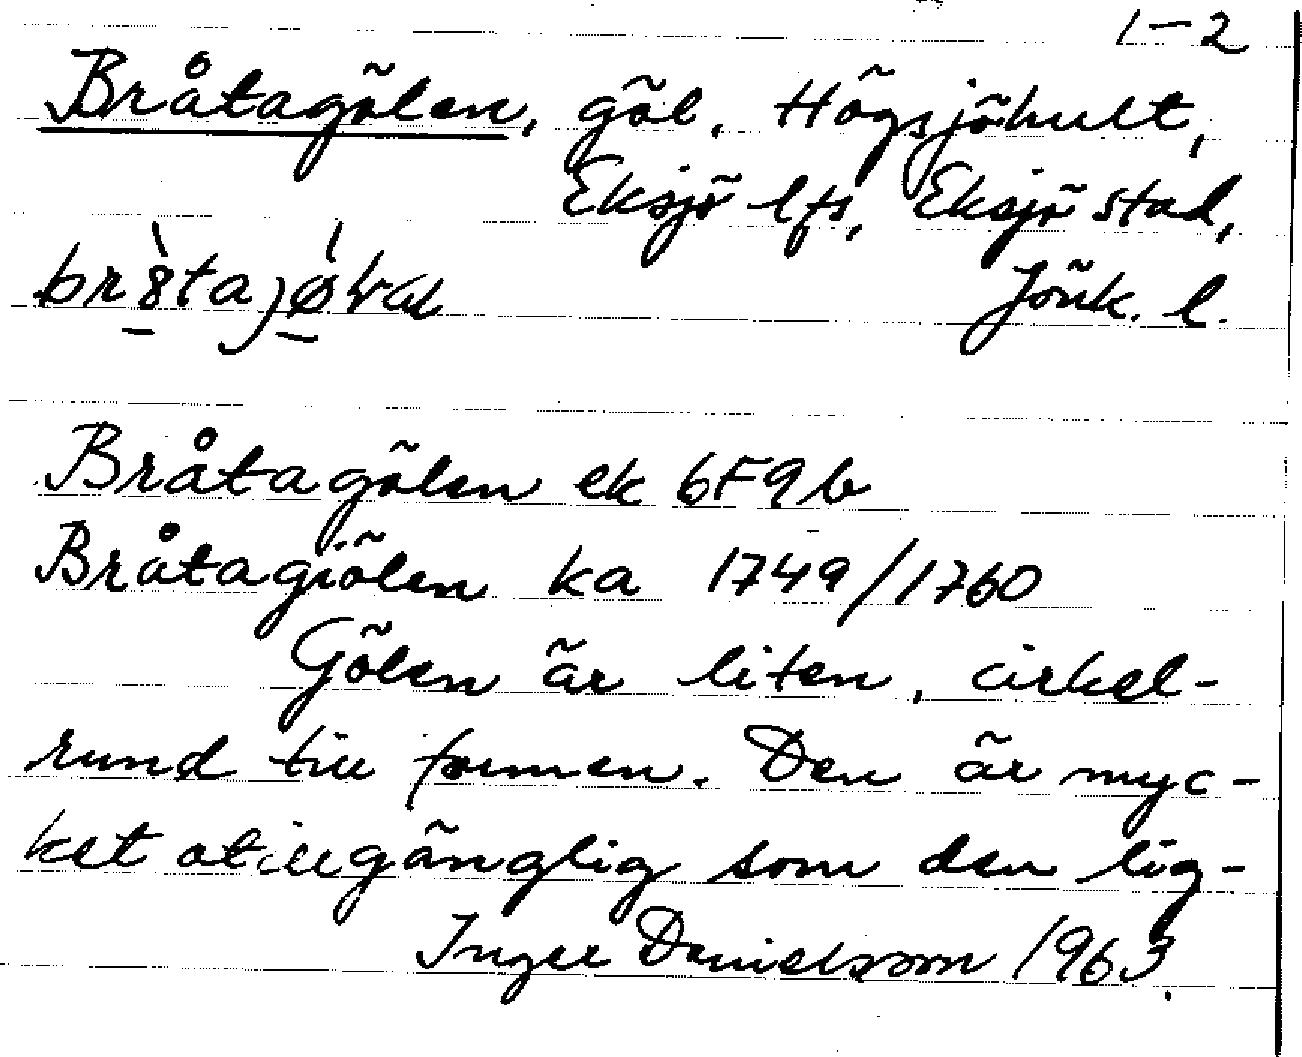 1-2
Bråtagölen, göl. Högsjöhult,
Eksjö lfs, Eksjö stad,
Jönk. l.
Bråtagölen ek 6F9b
Bråtagiölen ka 1749/1760
Gölen är liten, cirkel-
rund till formen. Den är myc-
ket otillgänglig som den lig-
Inger Danielsson 1963.